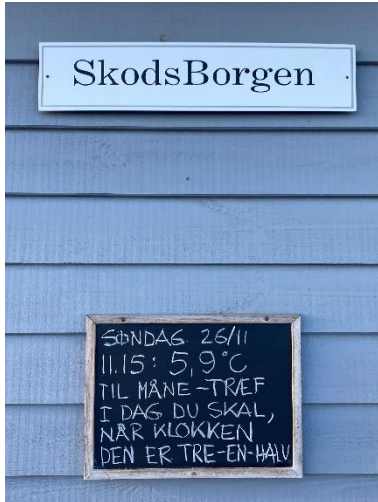 SkodsBorgen
SØNDAG 26/11
11.15: 5,9°C
TIL MÅNE-TRÆF
I DAG DU SKAL,
NÅR KLOKKEN
DEN ER TRE-EN-HALV